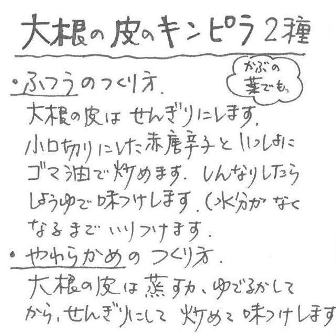 大根の皮のキンピラ2種
かぶの
葉でも。
・ふつうのつくり方.
大根の皮はせんぎりにします.
小口切りにした赤唐辛子といっしょに
ゴマ油で炒めます. しんなりしたら
しょうゆで味つけします. (水分がなく
なるまでいりつけます.
・やわらかめのつくり方.
大根の皮は蒸すか、ゆでるかして
から、せんぎりにして炒めて味つけします